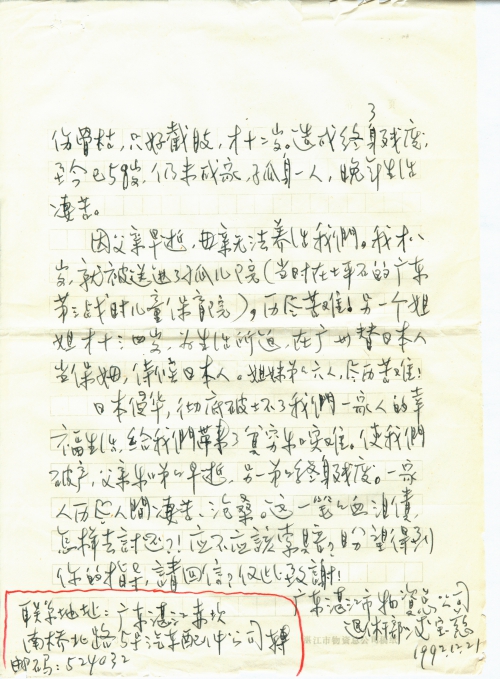 3
伤骨枯，只好截肢，才十二岁。造成终身残废，
至今已59岁，仍未成家，孤身一人，晚年生活
凄苦。
因父亲早逝，母亲无法养活我們。我才八
岁，就被送进了孤儿院（当时在坪石的广东
第三战时儿童保育院），历尽苦难！另一个姐
姐才十三四岁，为生活所迫，在广州替日本人
当保姆，侍侯日本人。姐妹弟六人，尽历苦难！
日本侵华，彻底破坏了我們一家人的幸
福生活，给我們带来了貧穷和灾难。使我們
破产，父亲和弟弟早逝，另一弟弟终身残废。一家
人历尽人間凄苦、沧桑。这一笔笔血泪债，
怎样去討还？！应不应該索賠？盼望得到
你的指导，請回信？仅此致謝！
广东湛江市物資总公司
退休部 宝慈
1992.12.21
联系地址：广东湛江赤坎
南桥北路5号汽车配件公司轉
邮码：524032